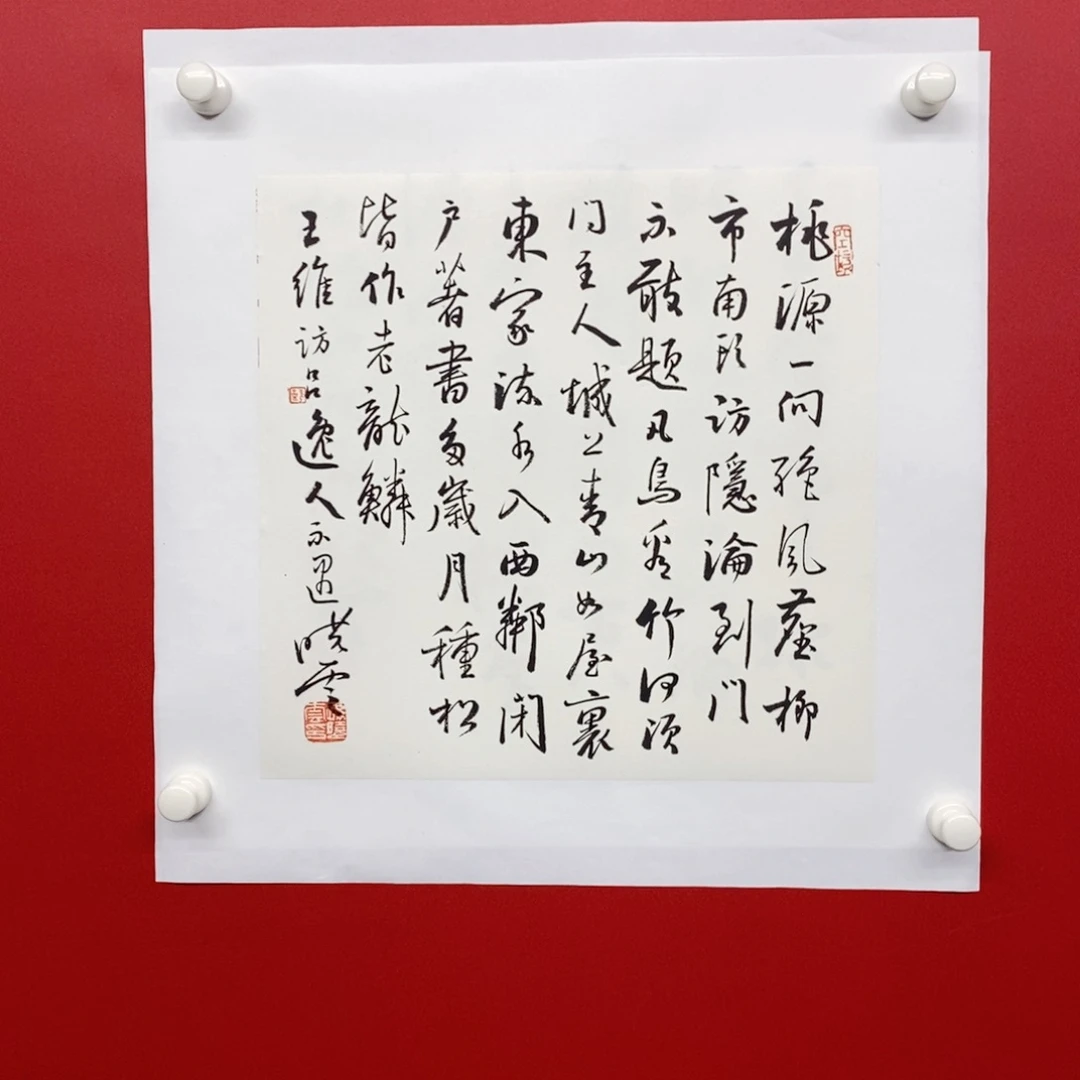 桃源一向絶風塵柳
市南頭訪隱淪到門
不敢題凡鳥看竹何須
問主人城上青山如屋裏
東家流水入西鄰閉
户著書多歲月種松
皆作老龍鱗
王維訪吕逸人不遇曉雲